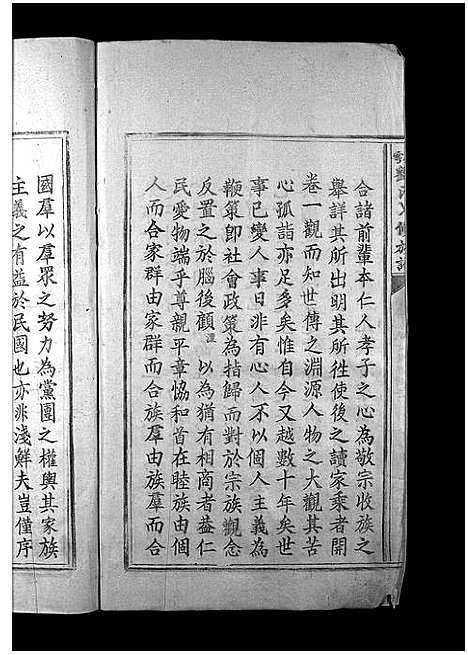 合諸前輩本仁人孝子之心為敬宗收族之
舉詳其所出明其所往使後之讀家乘者開
卷一觀而知世傳之淵源人物之大觀其苦
心孤詣亦足多矣惟自今又越數十年矣世
事已變人事日非有心人不以個人主義為
鞭策即社會政策為指歸而對於宗族觀念
反置之於腦後顧滙以為猶有相商者蓋仁
民愛物端乎尊親平章恊和首在睦族由個
人而合家群由家群而合族羣由族羣而合
國羣以羣眾之努力為黨團之權輿其家族
主義之有益於民國也亦非淺鮮夫豈僅序